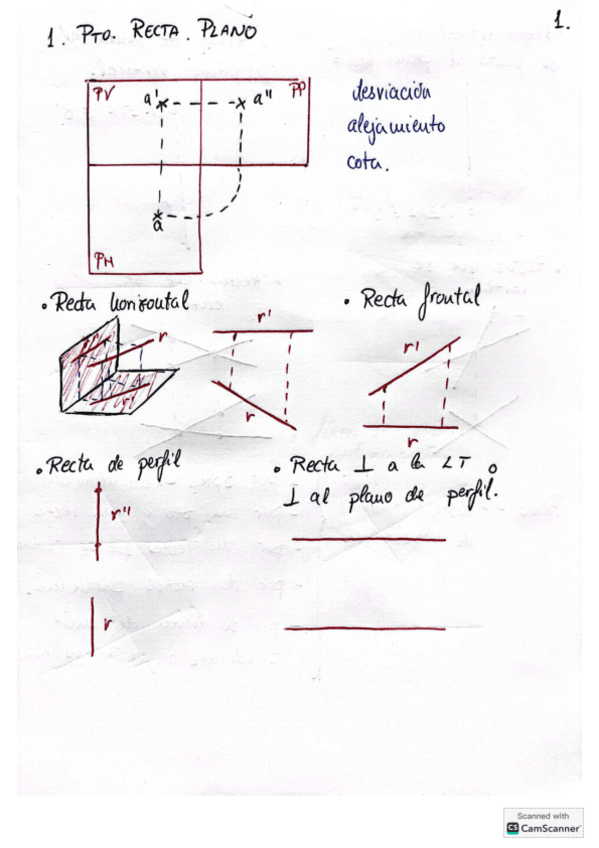 1.
1. PTO. RECTA. PLANO
PV
a'
a"
PP
a
PH
desviación
alejamiento
cota.
• Recta horizontal
r
r'
r
• Recta frontal
r'
r
• Recta de perfil
r"
r
• Recta ⊥ a la LT o
⊥ al plano de perfil.
Scanned with
CS CamScanner